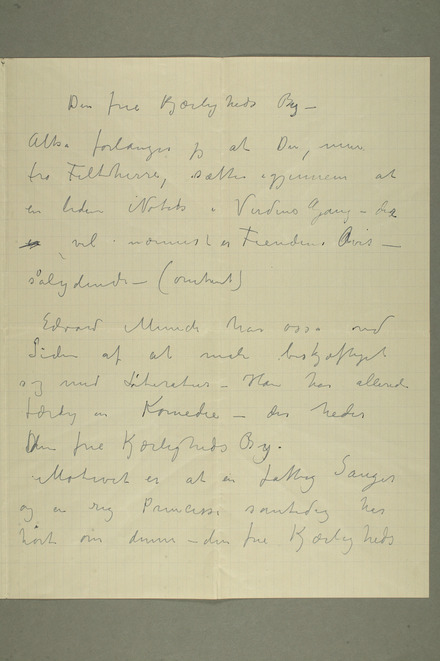 Den frie Kjærligheds By –
Altså forlanger jeg at Du, min
tro Feltherre, sætter igjennem at
en liden Notits i Verdens Gang – der
vel nærmest er Fiendens Avis –
sålydende – (omtrent)
Edvard Munch har også ved
Siden af at male beskjæftiget
sig med Literatur – Han har allerede
færdig en Komedie – der heder
Den frie Kjærligheds By.
Motivet er at en fattig Sanger
og en rig Princesse samtidig har
hørt om denne – den frie Kjærligheds